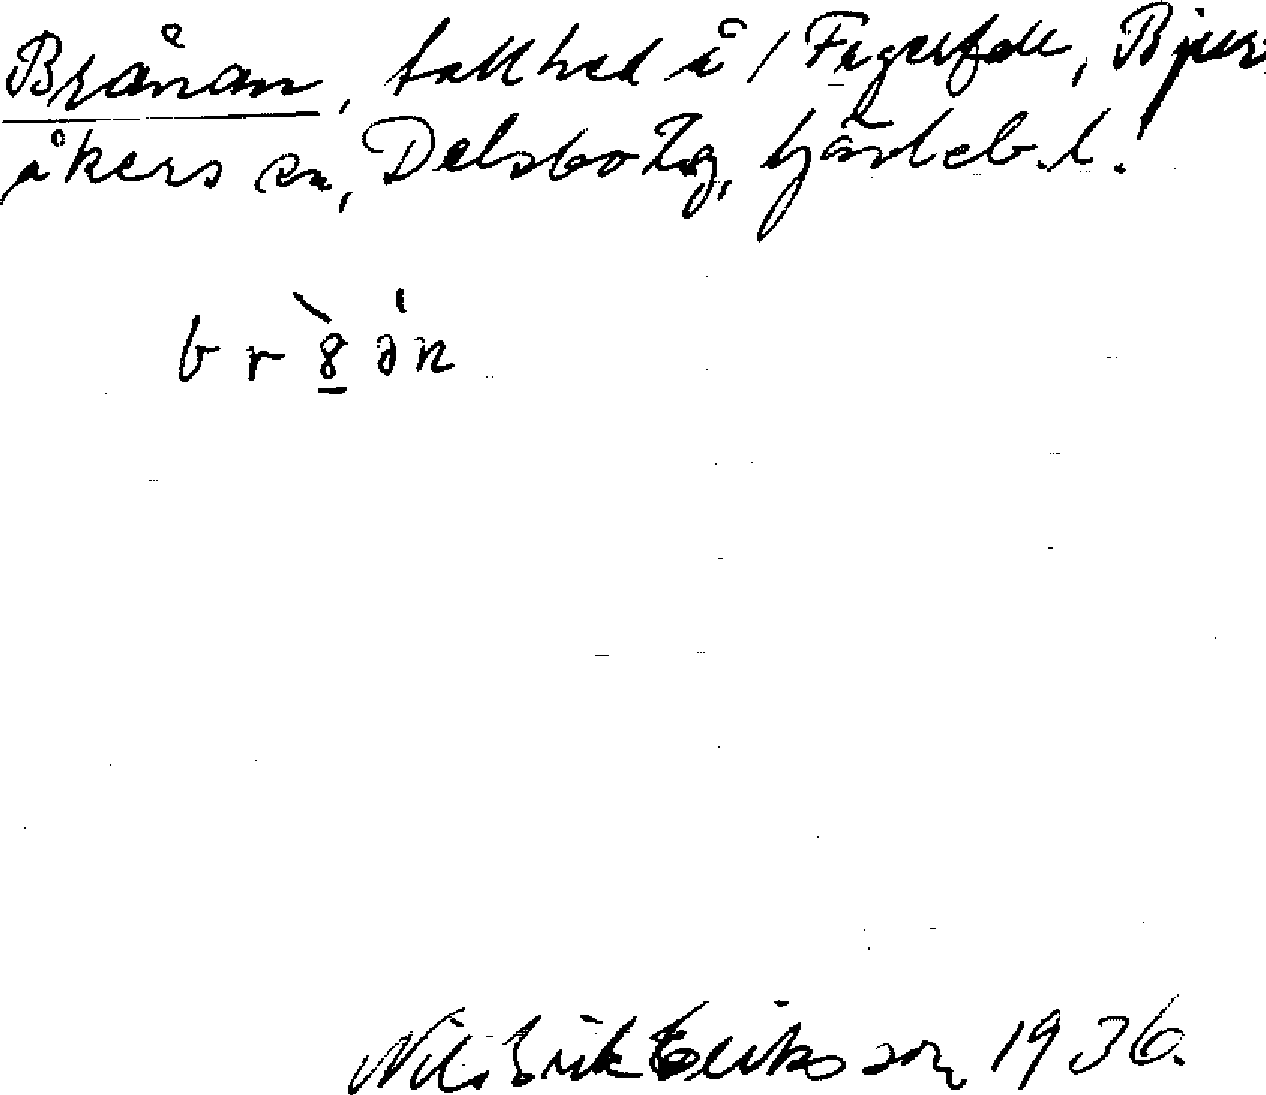 Brånan, tallhed å / Fagerfall, Bjur-
åkers sn, Delsbo tg, Gävleb. l.
br8ən
Nils Erik Eriksson 1936.